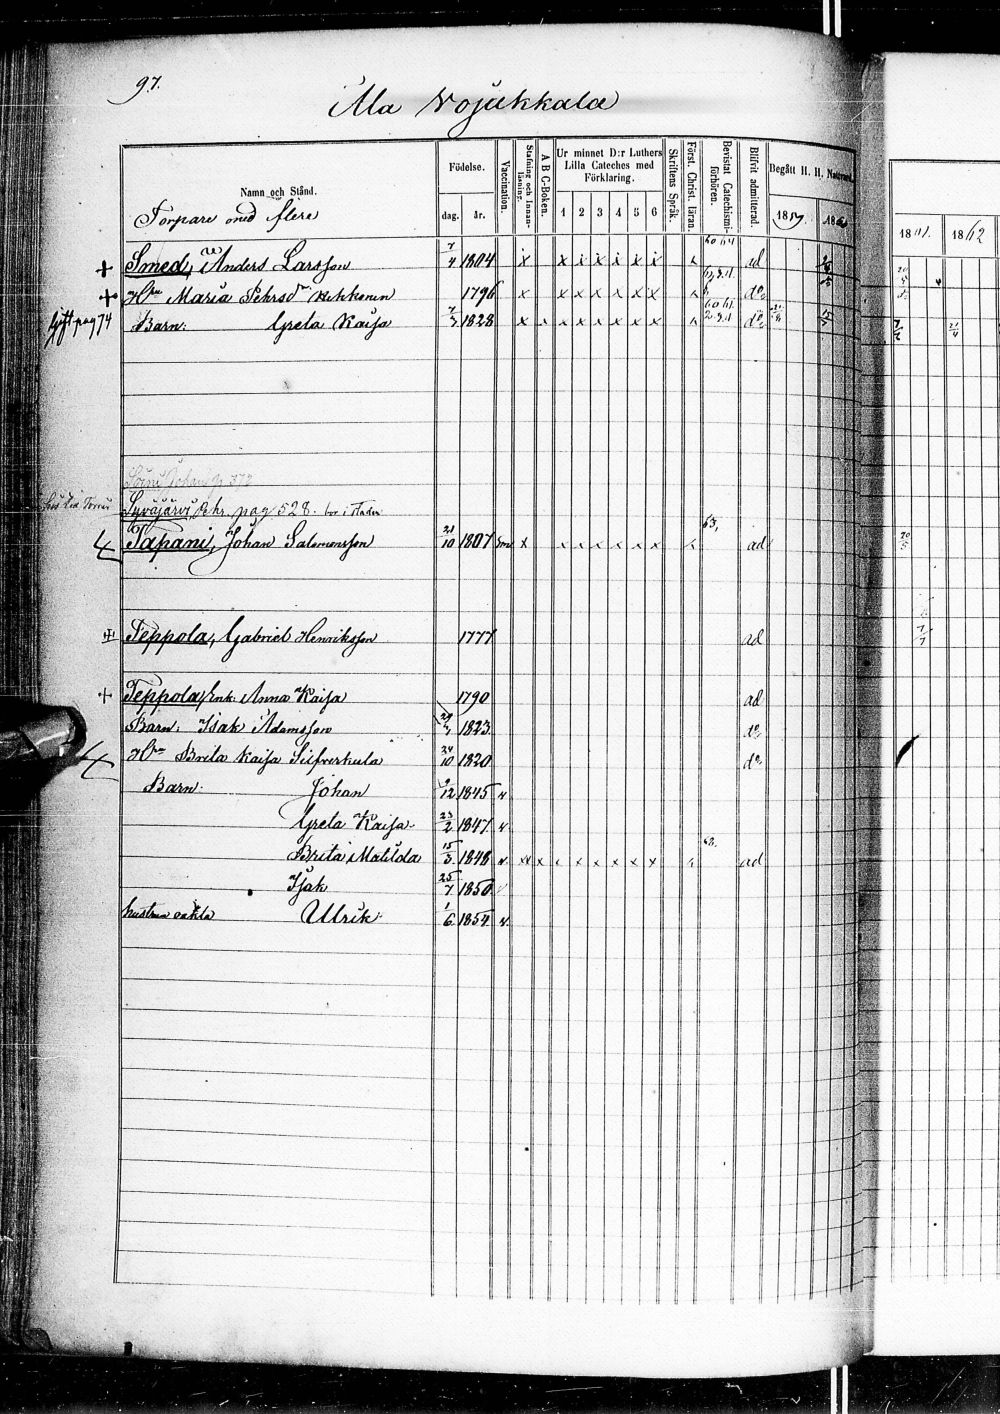 97.
Ala Vojakkala
Namn och Stånd.
Torpare med flere
Födelse.
dag. år.
Vaccination.
Stafning och Innanläsning.
A B C-Boken.
Ur minnet D:r Luthers
Lilla Cateches med
Förklaring.
1 2 3 4 5 6
Skriftens Språk.
Först. Christ. läran.
Bevistat Catechismiförhören.
Blifvit admitterad.
Begått H. H. Nattvard.
1859. 1860
1861. 1862
+ Smed, Anders Larsson 7/4 1804 x x x x x x x ad
+ Hu Maria Pehrsdr 1796 x x x x x x x do
Gift pag 74 Barn: Greta Kaisa 1828 x x x x x x x do
Syväjärvi, Pehr. pag 528. bor i
Tapani, Johan Salomonsson 21/10 1807 x x x x x x x ad
+ Teppola, Gabriel Henriksson 1777 ad
+ Teppola, Enk. Anna Kaisa 1790 ad
Barn: Isak Adamsson 1823 do
Hu Brita Kaisa Silfverkula 24/10 1820 do
Barn: Johan 9/12 1845 v
Greta Kaisa 23/2 1847 v
Brita Matilda 15/3 1848 v x x x x x x x ad
Isak 25/7 1850
Ulrik 1/6 1854 v